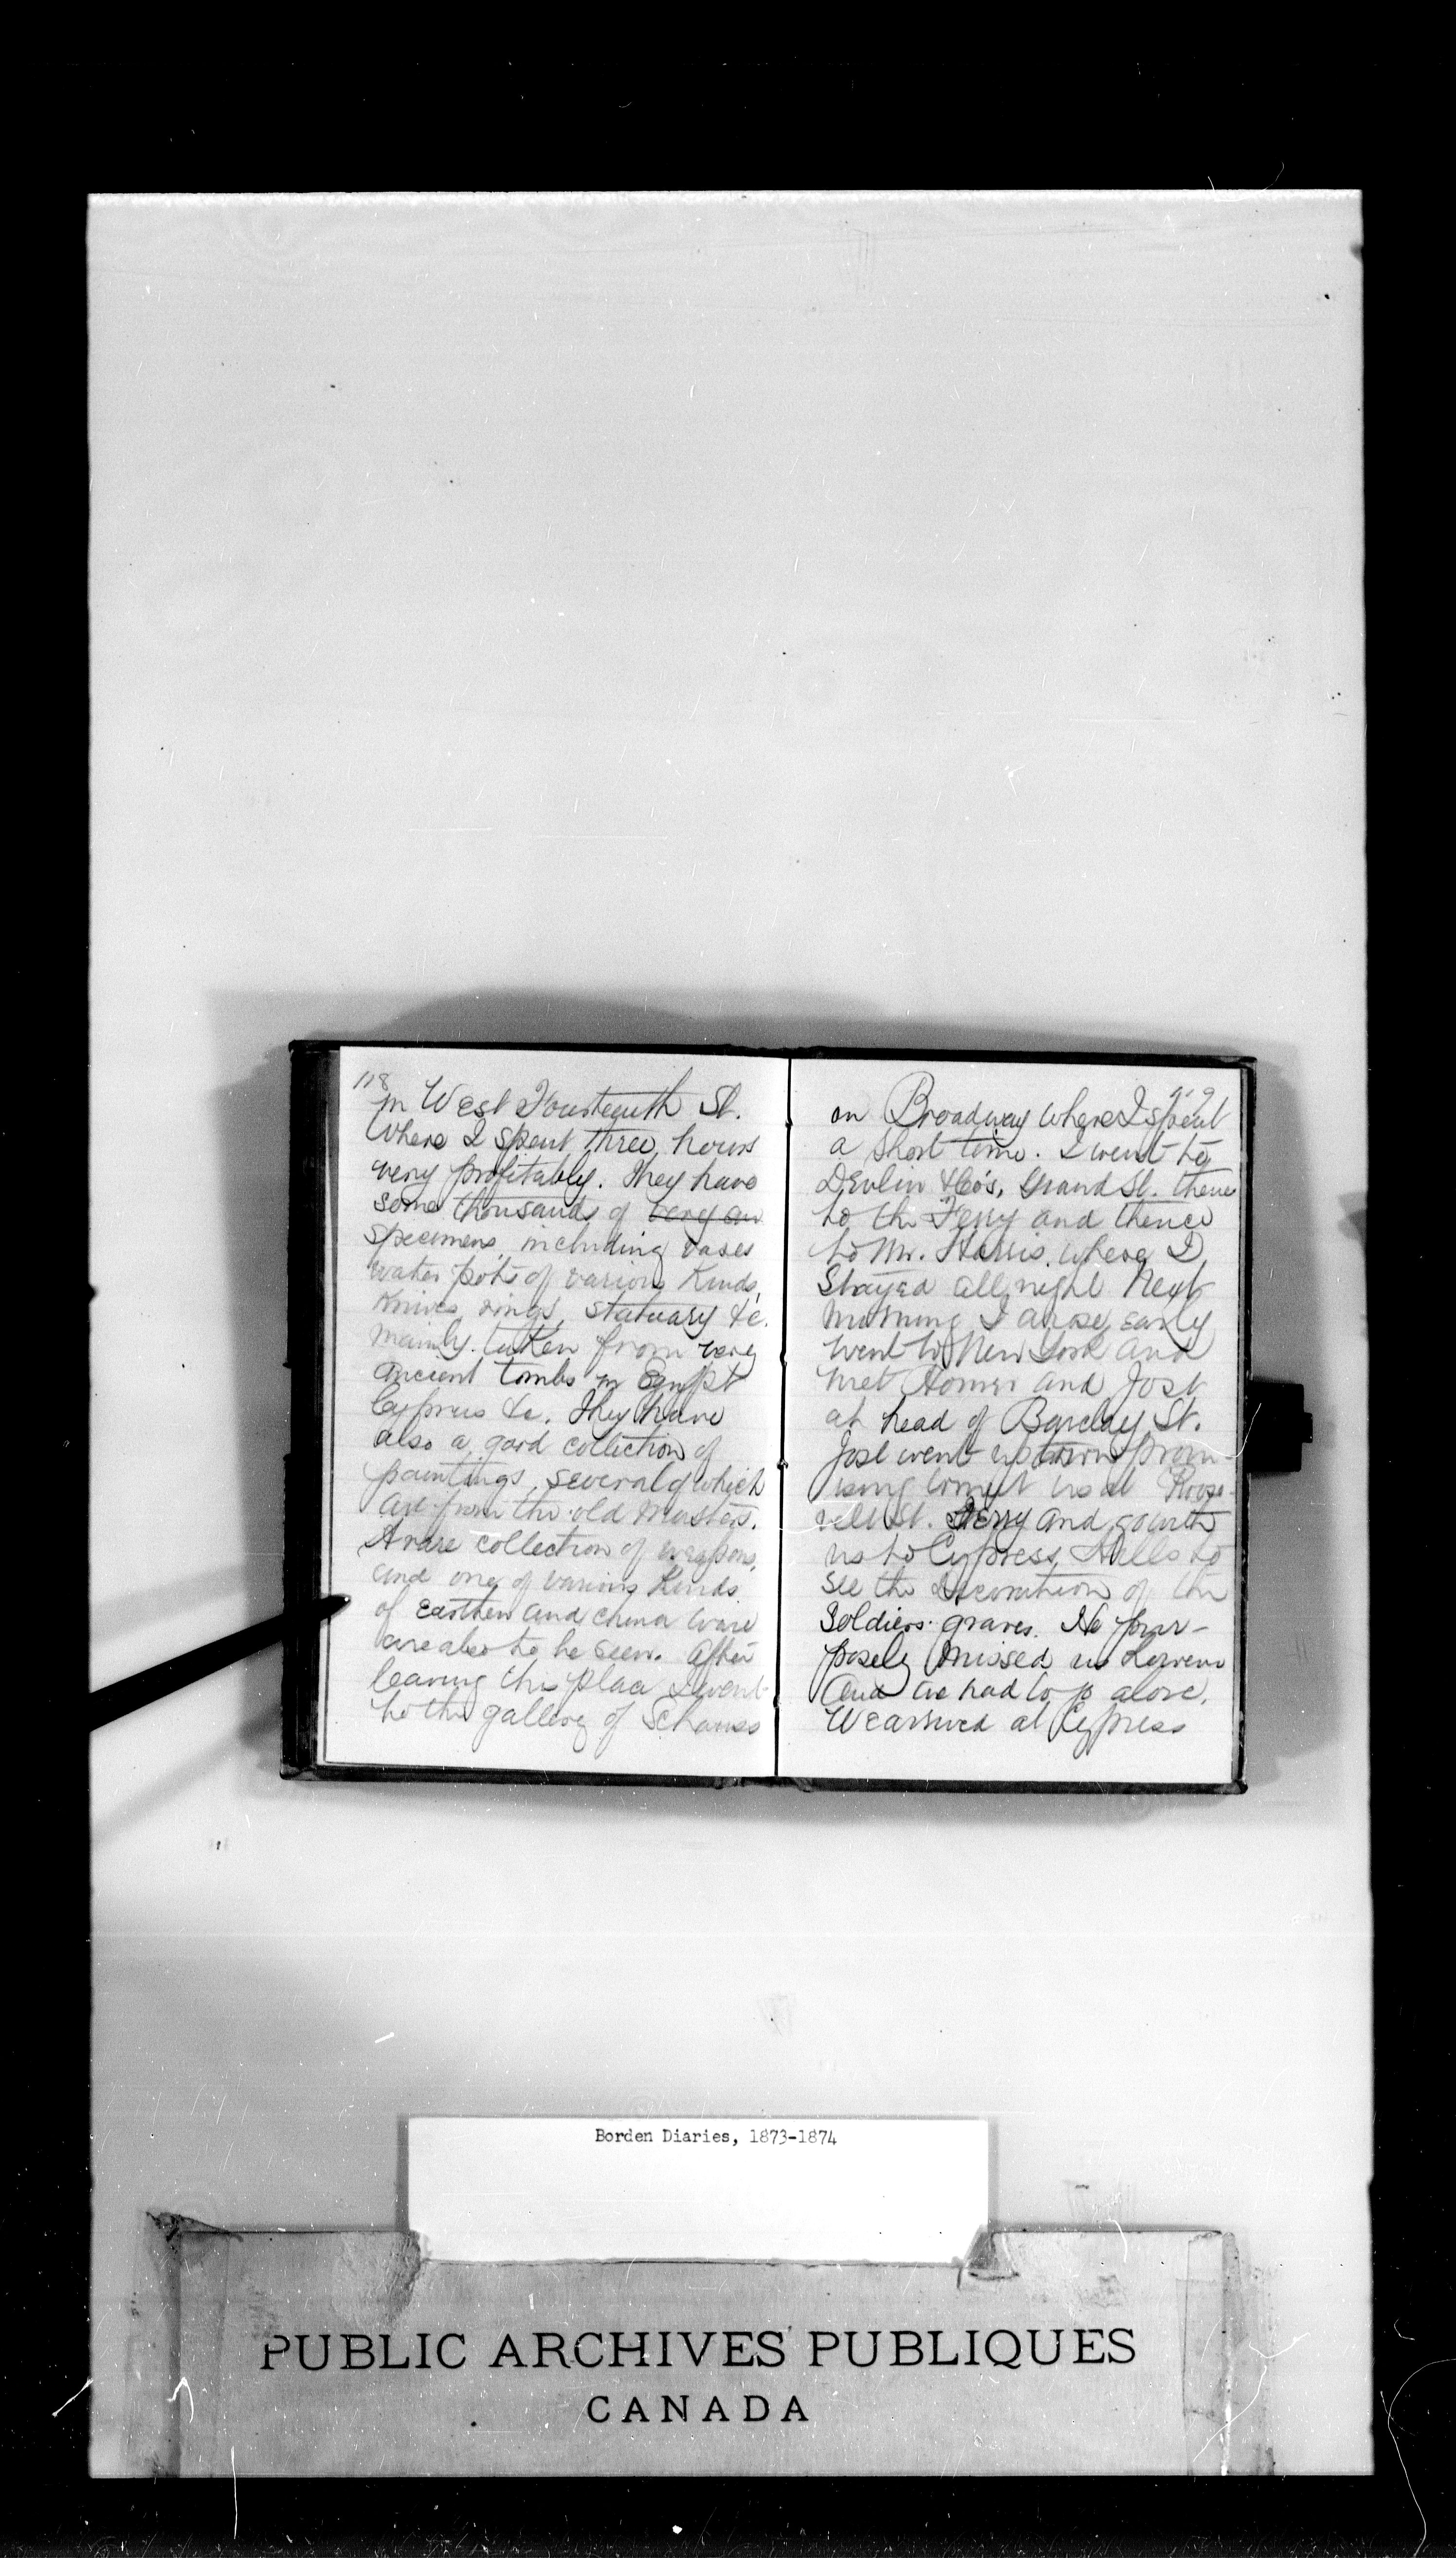 118
in West Fourteenth St.
Where I spent three hours
very profitably. They have
some thousands of very an
specimens, including vases
water pots of various Kinds,
Knives, rings, statuary &c.
mainly taken from very
ancient tombs in Egypt
Cyprus &c. They have
also a good collection of
paintings, several of which
are from the old Masters.
A rare collection of weapons,
and one of various Kinds
of Earthen and china ware
are also to be seen. After
leaving this place I went
to the gallery of Schauss
119
on Broadway where I spent
a short time. I went to
Devlin & Co's, Grand St. thence
to the Ferry and thence
to Mr. Harris. where I
Stayed all night. Next
morning I arose early
went to New York and
met Homer and Jost
at head of Barclay St.
Jost went uptown prom-
ising to meet us at Roose-
velt St. Ferry and go with
us to Cypress Hills to
see the Decoration of the
Soldiers graves. He pur-
posely missed us
and we had to go alone.
We arrived at Cypress
Borden Diaries, 1873-1874
PUBLIC ARCHIVES PUBLIQUES
CANADA